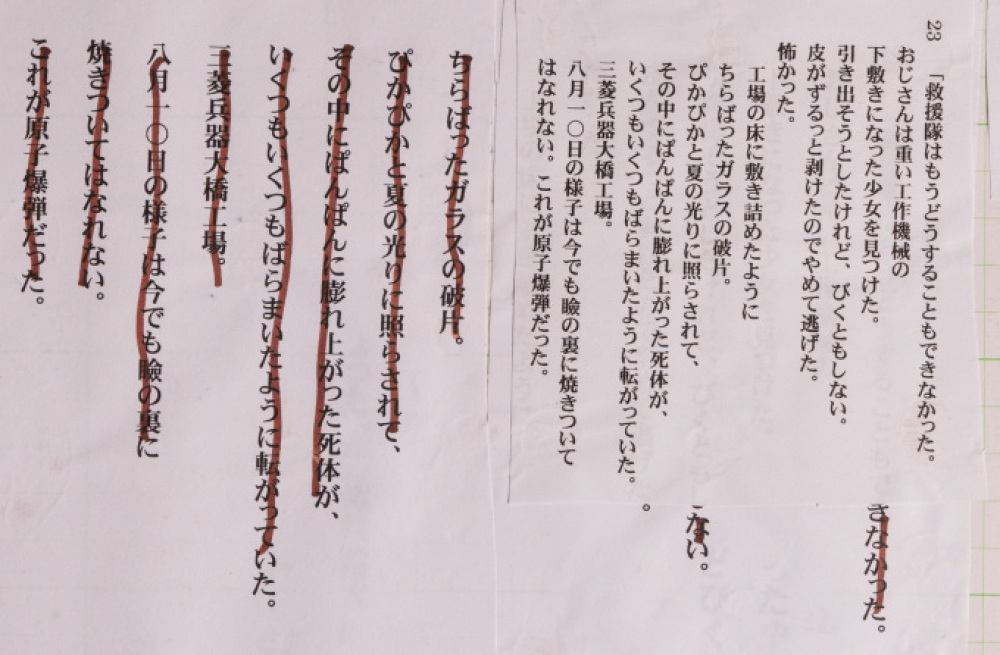 23
「救援隊はもうどうすることもできなかった。
おじさんは重い工作機械の
下敷きになった少女を見つけた。
引き出そうとしたけれど、びくともしない。
皮がずるっと剥けたのでやめて逃げた。
怖かった。
工場の床に敷き詰めたように
ちらばったガラスの破片。
ぴかぴかと夏の光りに照らされて、
その中にぱんぱんに膨れ上がった死体が、
いくつもいくつもばらまいたように転がっていた。
三菱兵器大橋工場。
八月一〇日の様子は今でも瞼の裏に焼きついて
はなれない。これが原子爆弾だった。
きなかった。
ない。
。
ちらばったガラスの破片。
ぴかぴかと夏の光りに照らされて、
その中にぱんぱんに膨れ上がった死体が、
いくつもいくつもばらまいたように転がっていた。
三菱兵器大橋工場。
八月一〇日の様子は今でも瞼の裏に
焼きついてはなれない。
これが原子爆弾だった。